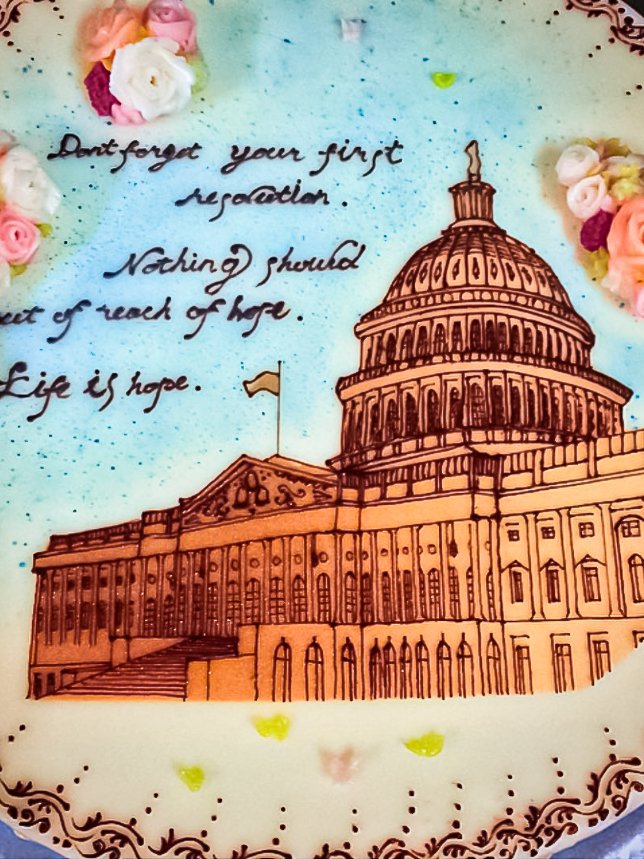 Dont forget your first
resolution.
Nothing should
out of reach of hope.
Life is hope.